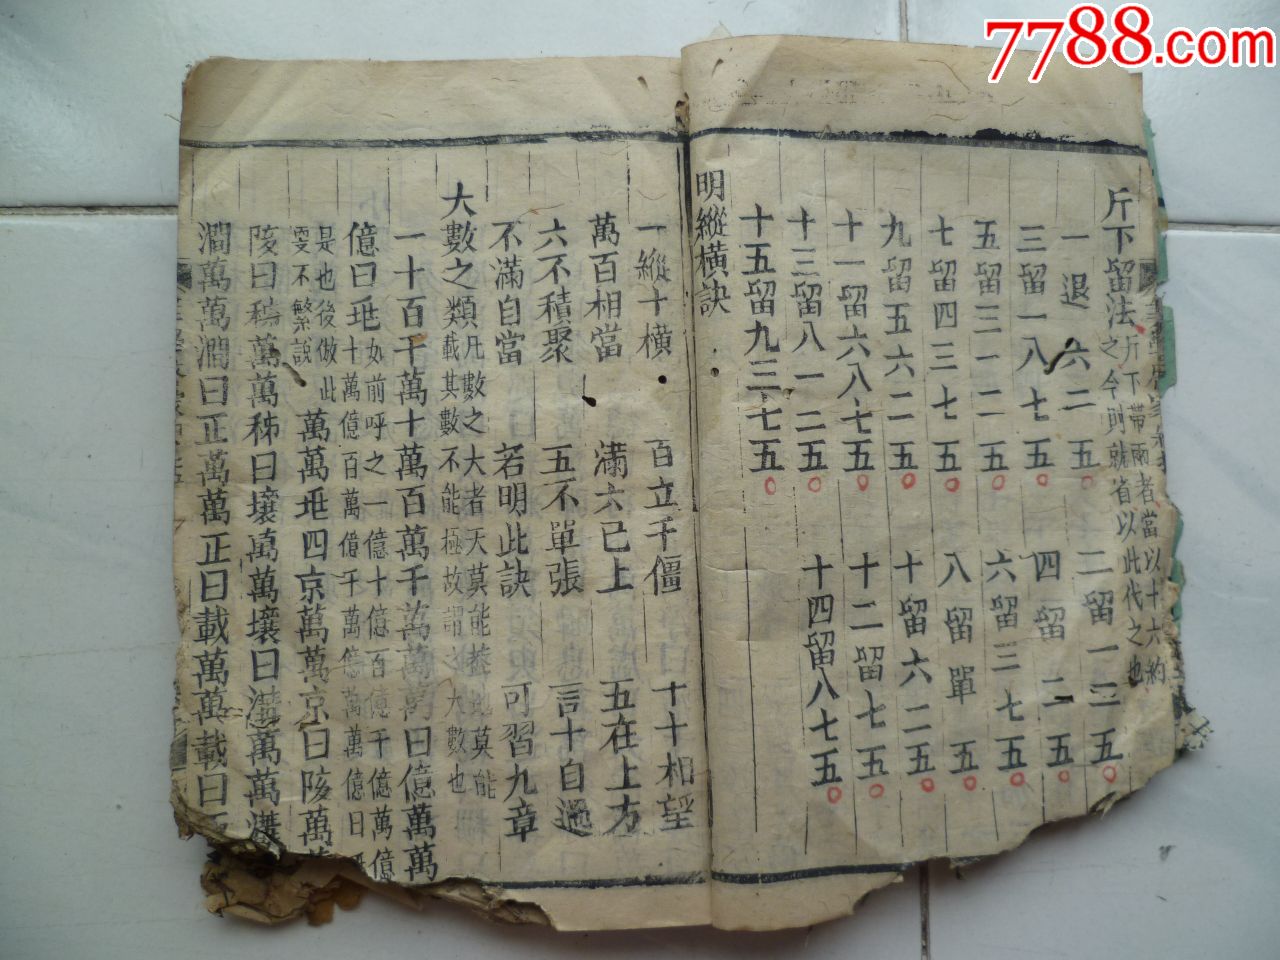 7788.com
斤下留法 斤下帶兩者當以十六約
之今則就省以此代之也
一退六二五 二留一二五
三留一八七五 四留二五
五留三一二五 六留三七五
七留四三七五 八留單五
九留五六二五 十留六二五
十一留六八七五 十二留七五
十三留八一二五 十四留八七五
十五留九三七五
明縱橫訣
一縱十橫 百立千僵 十十相望
萬百相當 滿六已上 五在上方
六不積聚 五不單張 言十自過
不滿自當 若明此訣 可習九章
大數之類 凡數之大者天莫能蓋地莫能
載其數不能極故謂之大數也
一十百千萬十萬百萬千萬萬萬曰億萬萬
億曰垗 如前呼之一億十億百億千億萬億
十萬億百萬億千萬億萬萬億曰
是也後倣此
雯不繁說
萬萬垗四京萬萬京曰陔萬
陔曰秭萬萬秭曰壤萬萬壤曰溝萬萬溝
澗萬萬澗曰正萬萬正曰載萬萬載曰